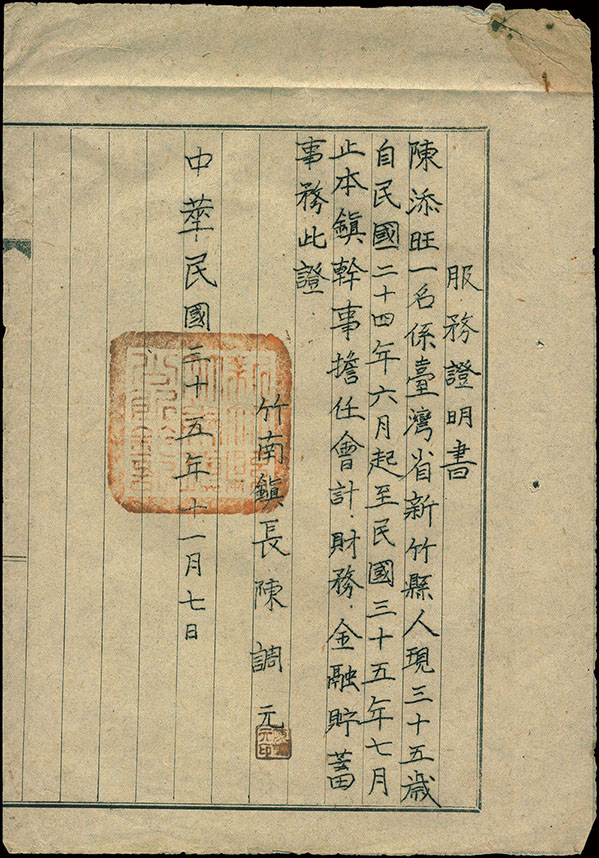 服務證明書
陳添旺一名係臺灣省新竹縣人現三十五歲
自民國二十四年六月起至民國三十五年七月
止本鎮幹事擔任會計．財務．金融貯蓄
事務此證
竹南鎮長陳調元
中華民國三十五年十一月七日